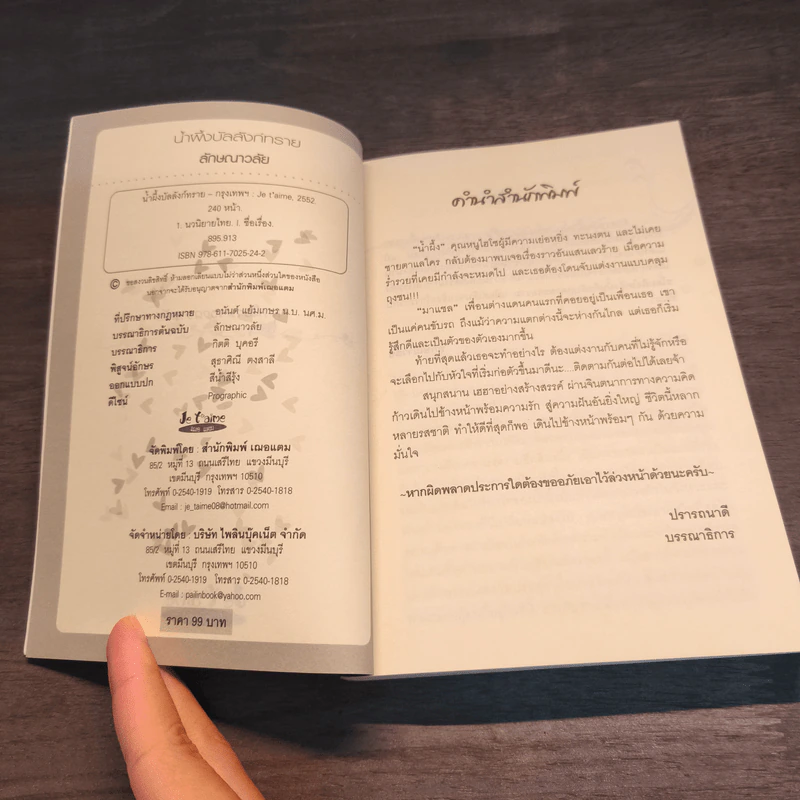 น้ำผึ้งบัลลังก์ทราย
ลักษณาวลัย
น้ำผึ้งบัลลังก์ทราย – กรุงเทพฯ : Je t'aime, 2552.
240 หน้า.
1. นวนิยายไทย. I. ชื่อเรื่อง.
895.913
ISBN 978-611-7025-24-2
© ขอสงวนลิขสิทธิ์ ห้ามลอกเลียนแบบไม่ว่าส่วนหนึ่งส่วนใดของหนังสือ
นอกจากจะได้รับอนุญาตจากสำนักพิมพ์เฌอแตม
ที่ปรึกษาทางกฎหมาย อนันต์ แย้มเกษร น.บ. นศ.ม.
บรรณาธิการต้นฉบับ ลักษณาวลัย
บรรณาธิการ กิตติ บุคอรี
พิสูจน์อักษร สุธาศิณี ดงสาลี
ออกแบบปก สีน้ำสีรุ้ง
ดีไซน์ Prographic
Je t'aime
จัดพิมพ์โดย : สำนักพิมพ์ เฌอแตม
85/2 หมู่ที่ 13 ถนนเสรีไทย แขวงมีนบุรี
เขตมีนบุรี กรุงเทพฯ 10510
โทรศัพท์ 0-2540-1919 โทรสาร 0-2540-1818
Email : je_taime08@hotmail.com
จัดจำหน่ายโดย : บริษัท ไพลินบุ๊คเน็ต จำกัด
85/2 หมู่ที่ 13 ถนนเสรีไทย แขวงมีนบุรี
เขตมีนบุรี กรุงเทพฯ 10510
โทรศัพท์ 0-2540-1919 โทรสาร 0-2540-1818
E-mail : pailinbook@yahoo.com
ราคา 99 บาท
คำนำสำนักพิมพ์
"น้ำผึ้ง" คุณหนูไฮโซผู้มีความเย่อหยิ่ง ทะนงตน และไม่เคย
ชายตาแลใคร กลับต้องมาพบเจอเรื่องราวอันแสนเลวร้าย เมื่อความ
ร่ำรวยที่เคยมีกำลังจะหมดไป และเธอต้องโดนจับแต่งงานแบบคลุม
ถุงชน!!!
"มาแชล" เพื่อนต่างแดนคนแรกที่คอยอยู่เป็นเพื่อนเธอ เขา
เป็นแค่คนขับรถ ถึงแม้ว่าความแตกต่างนี้จะห่างกันไกล แต่เธอก็เริ่ม
รู้สึกดีและเป็นตัวของตัวเองมากขึ้น
ท้ายที่สุดแล้วเธอจะทำอย่างไร ต้องแต่งงานกับคนที่ไม่รู้จักหรือ
จะเลือกไปกับหัวใจที่เริ่มก่อตัวขึ้นมาดีนะ...ติดตามกันต่อไปได้เลยจ้า
สนุกสนาน เฮฮาอย่างสร้างสรรค์ ผ่านจินตนาการทางความคิด
ก้าวเดินไปข้างหน้าพร้อมความรัก สู่ความฝันอันยิ่งใหญ่ ชีวิตนี้หลาก
หลายรสชาติ ทำให้ดีที่สุดก็พอ เดินไปข้างหน้าพร้อมๆ กัน ด้วยความ
มั่นใจ
~หากผิดพลาดประการใดต้องขออภัยเอาไว้ล่วงหน้าด้วยนะครับ~
ปรารถนาดี
บรรณาธิการ